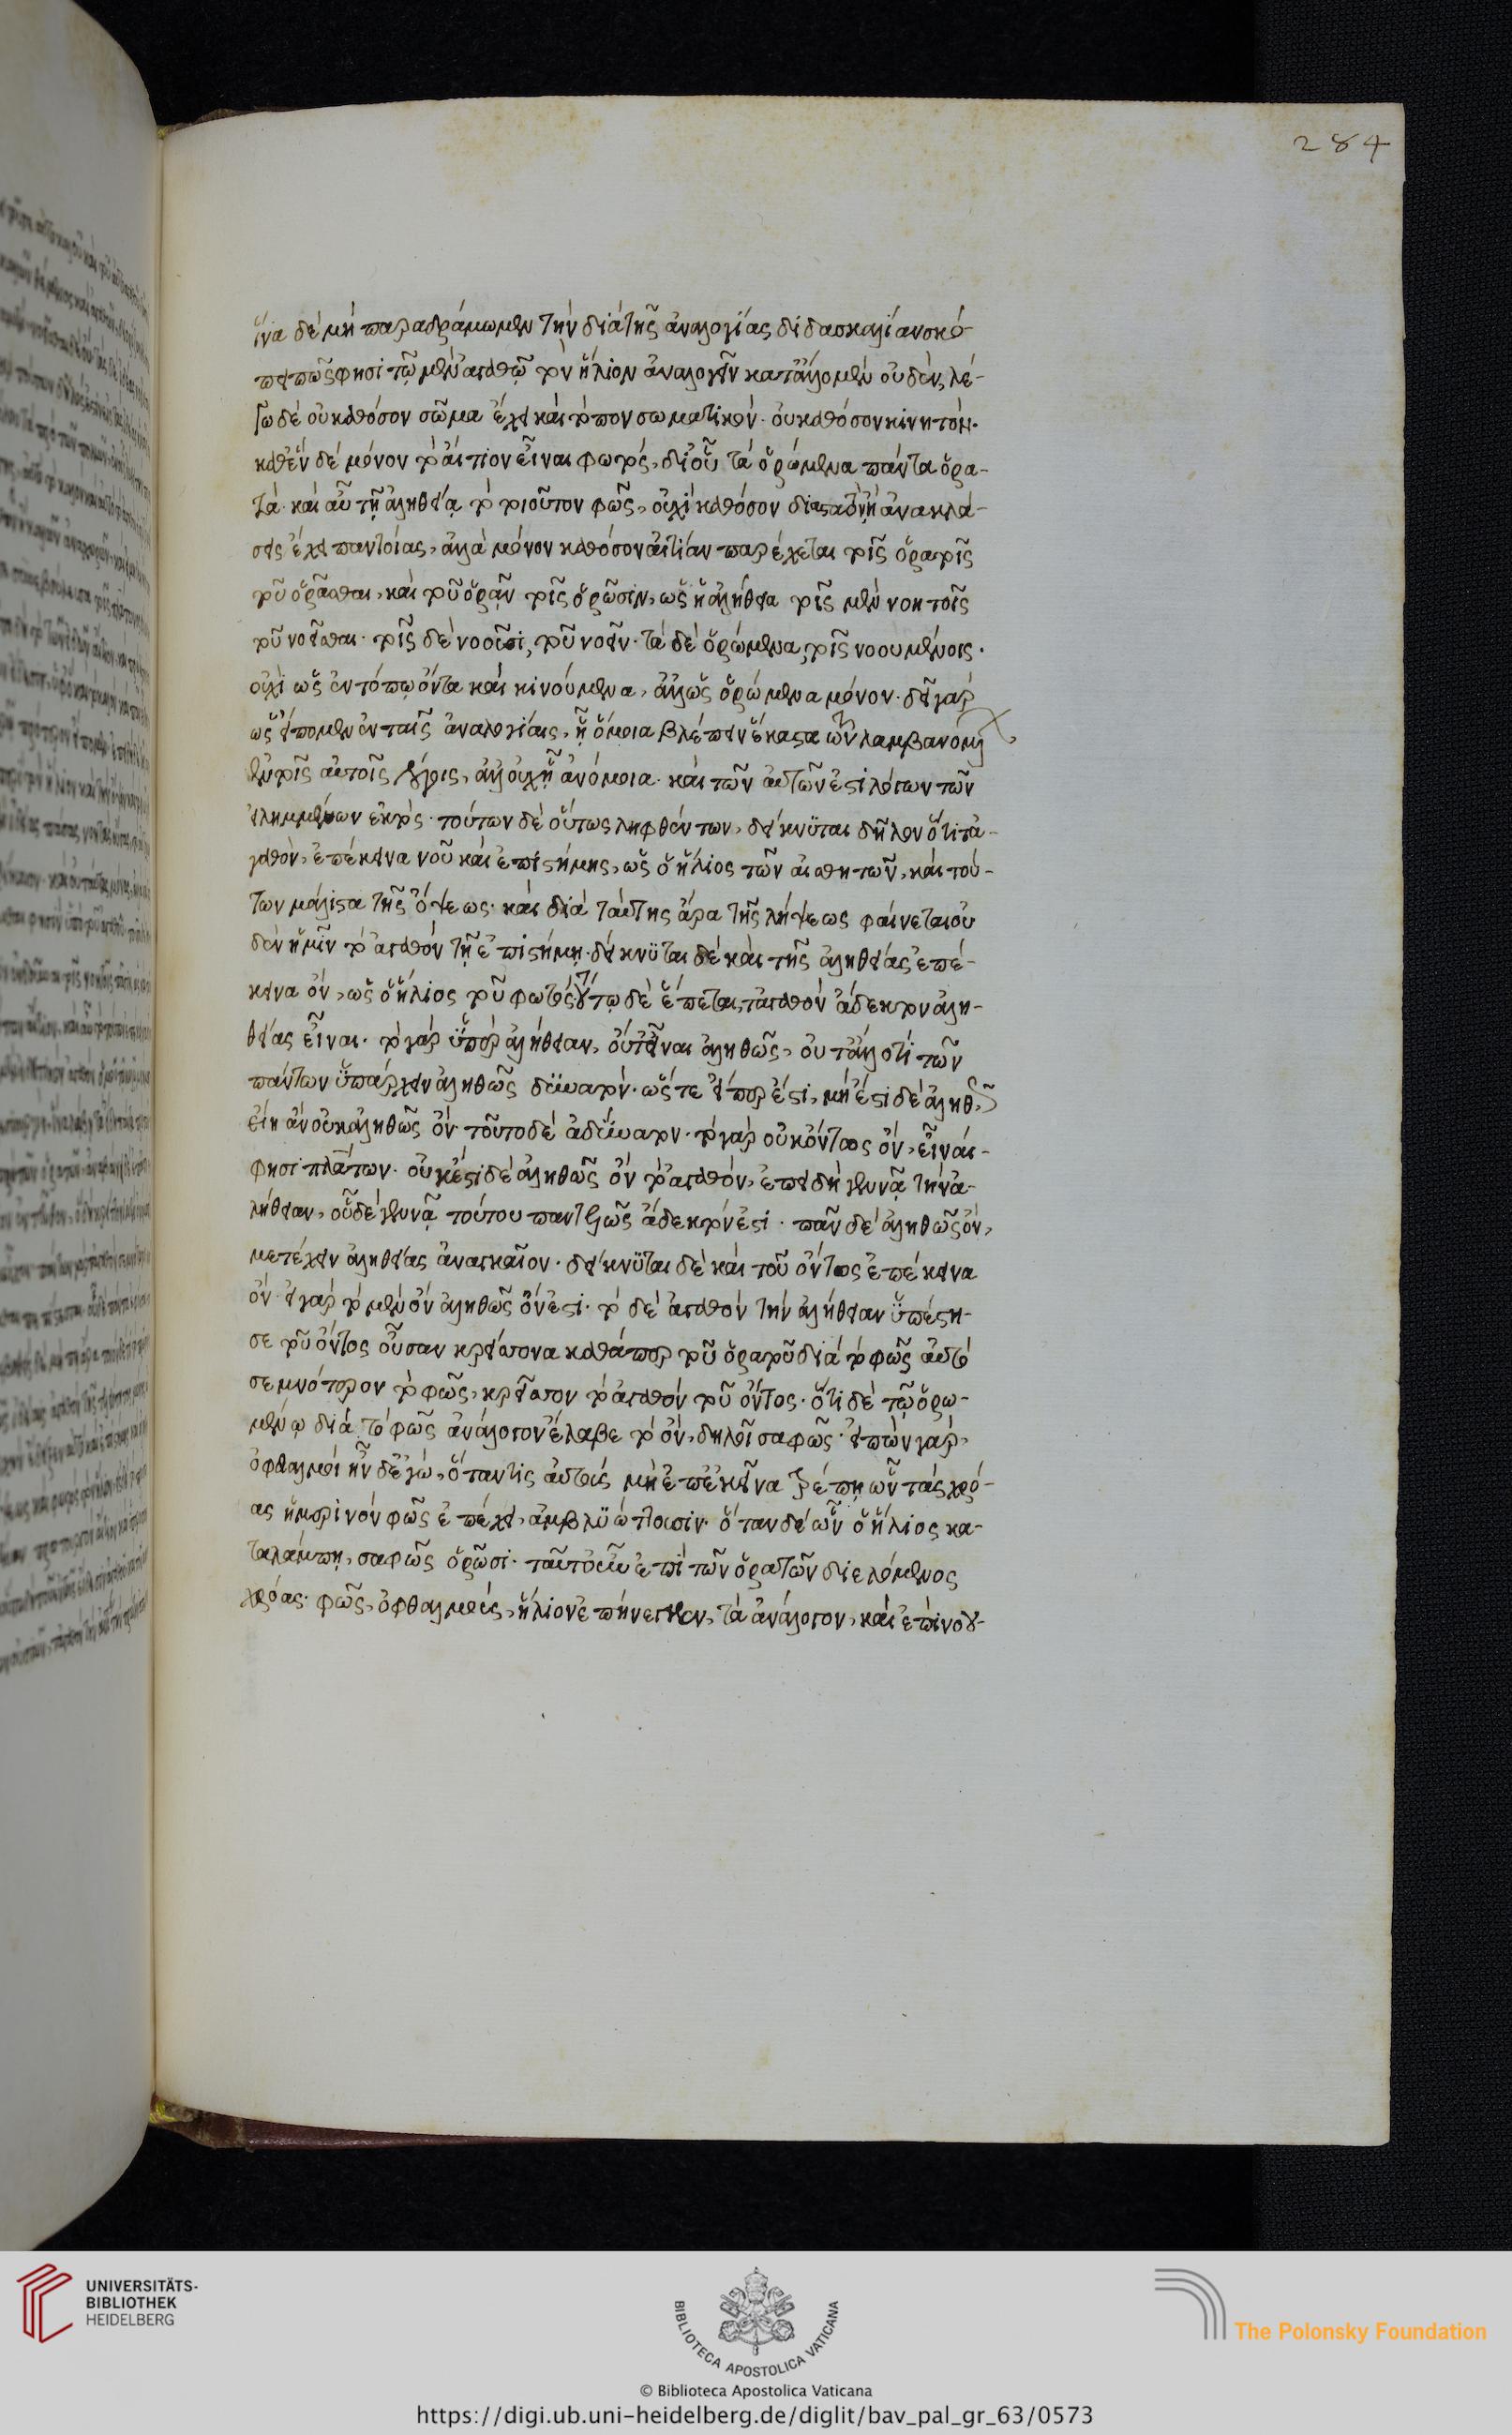 284
ἵνα δὲ μὴ παραδράμωμεν τὴν διὰ τῆς ἀναλογίας διδασκαλίαν σκό-
πει πῶς φησὶ τῷ μὲν ἀγαθῷ τὸν ἥλιον ἀναλογεῖν κατ' ἄλλο μὲν οὐδὲν, λέ-
γω δὲ οὐ καθόσον σῶμα ἔχει καὶ τόπον σωματικόν. οὐ καθόσον κινητόν.
καθ' ἓν δὲ μόνον τὸ αἴτιον εἶναι φωτός, δι' οὗ τὰ ὁρώμενα πάντα ὁρα-
τά. καὶ αὖ τῇ ἀληθείᾳ τὸ τοιοῦτον φῶς, οὐχὶ καθόσον διαστατὸν ἢ ἀνακλά-
σεις ἔχει παντοίας, ἀλλὰ μόνον καθόσον αἰτίαν παρέχεται τοῖς ὁρατοῖς
τοῦ ὁρᾶσθαι, καὶ τοῦ ὁρᾶν τοῖς ὁρῶσιν, ὡς ἡ ἀλήθεια τοῖς μὲν νοητοῖς
τοῦ νοεῖσθαι. τοῖς δὲ νοοῦσι, τοῦ νοεῖν. τὰ δὲ ὁρώμενα, τοῖς νοουμένοις.
οὐχὶ ὡς ἐν τόπῳ ὄντα καὶ κινούμενα, ἀλλ' ὡς ὁρώμενα μόνον. δεῖ γὰρ
ὡς εἴπομεν ἐν ταῖς ἀναλογίαις, ᾗ ὅμοια βλέπειν ἕκαστα τῶν λαμβανομέ
νων τοῖς αὐτοῖς λόγοις, ἀλλ' οὐχ ᾗ ἀνόμοια. καὶ τῶν αὐτῶν ἐστὶ λόγων τῶν
εἰλημμένων ἐκτός. τούτων δὲ οὕτως ληφθέντων, δείκνυται δῆλον ὅτι τἀ-
γαθὸν, ἐπέκεινα νοῦ καὶ ἐπιστήμης, ὡς ὁ ἥλιος τῶν αἰσθητῶν, καὶ τού-
των μάλιστα τῆς ὄψεως. καὶ διὰ ταύτης ἄρα τῆς λήψεως φαίνεται οὐ
δὲν ἡμῖν τὸ ἀγαθὸν τῇ ἐπιστήμῃ. δείκνυται δὲ καὶ τῆς ἀληθείας ἐπέ-
κεινα ὂν, ὡς ὁ ἥλιος τοῦ φωτός τούτῳ δὲ ἕπεται, τἀγαθὸν ἄδεκτον ἀλη-
θείας εἶναι. τὸ γὰρ ὑπὲρ ἀλήθειαν, οὔτ' εἶναι ἀληθῶς, οὔτ' ἄλλο τι τῶν
πάντων ὑπάρχειν ἀληθῶς δυνατόν. ὥστε εἴπερ ἐστὶ, μὴ ἔστι δὲ ἀληθῶς
εἴη ἂν οὐκ ἀληθῶς ὄν. τοῦτο δὲ ἀδύνατον. τὸ γὰρ οὐκ ὄντως ὂν, εἶναί
φησι πλάτων. οὐκ ἔστι δὲ ἀληθῶς ὂν τὸ ἀγαθόν, ἐπειδὴ γεννᾷ τὴν ἀ-
λήθειαν, οὗ δὲ γεννᾷ τούτου παντελῶς ἄδεκτόν ἐστι. πᾶν δὲ ἀληθῶς ὂν,
μετέχειν ἀληθείας ἀναγκαῖον. δείκνυται δὲ καὶ τοῦ ὄντος ἐπέκεινα
ὄν. εἰ γὰρ τὸ μὲν ὂν ἀληθῶς ὄν ἐστι. τὸ δὲ ἀγαθὸν τὴν ἀλήθειαν ὑπέστη-
σε τοῦ ὄντος οὖσαν κρείττονα καθάπερ τοῦ ὁρατοῦ διὰ τὸ φῶς αὐτό
σεμνότερον τὸ φῶς, κρεῖττον τὸ ἀγαθὸν τοῦ ὄντος. ὅτι δὲ τῷ ὁρω-
μένῳ διὰ τὸ φῶς ἀνάλογον ἔλαβε τὸ ὂν, δηλοῖ σαφῶς. εἰπὼν γὰρ,
ὀφθαλμοὶ ἦν δ' ἐγὼ, ὅταν τις αὐτοὺς μὴ ἐπ' ἐκεῖνα τρέπῃ ὧν τὰς χρό-
ας ἡμερινὸν φῶς ἐπέχει, ἀμβλυώττουσιν. ὅταν δὲ ὧν ὁ ἥλιος κα-
ταλάμπῃ, σαφῶς ὁρῶσι. ταῦτ' οὖν ἐπὶ τῶν ὁρατῶν διελόμενος
χρόας. φῶς, ὀφθαλμοὺς, ἥλιον ἐπήνεγκεν, τὰ ἀνάλογον, καὶ ἐπὶ νου-
UNIVERSITÄTS-
BIBLIOTHEK
HEIDELBERG
BIBLIOTECA APOSTOLICA VATICANA
The Polonsky Foundation
© Biblioteca Apostolica Vaticana
https://digi.ub.uni-heidelberg.de/diglit/bav_pal_gr_63/0573